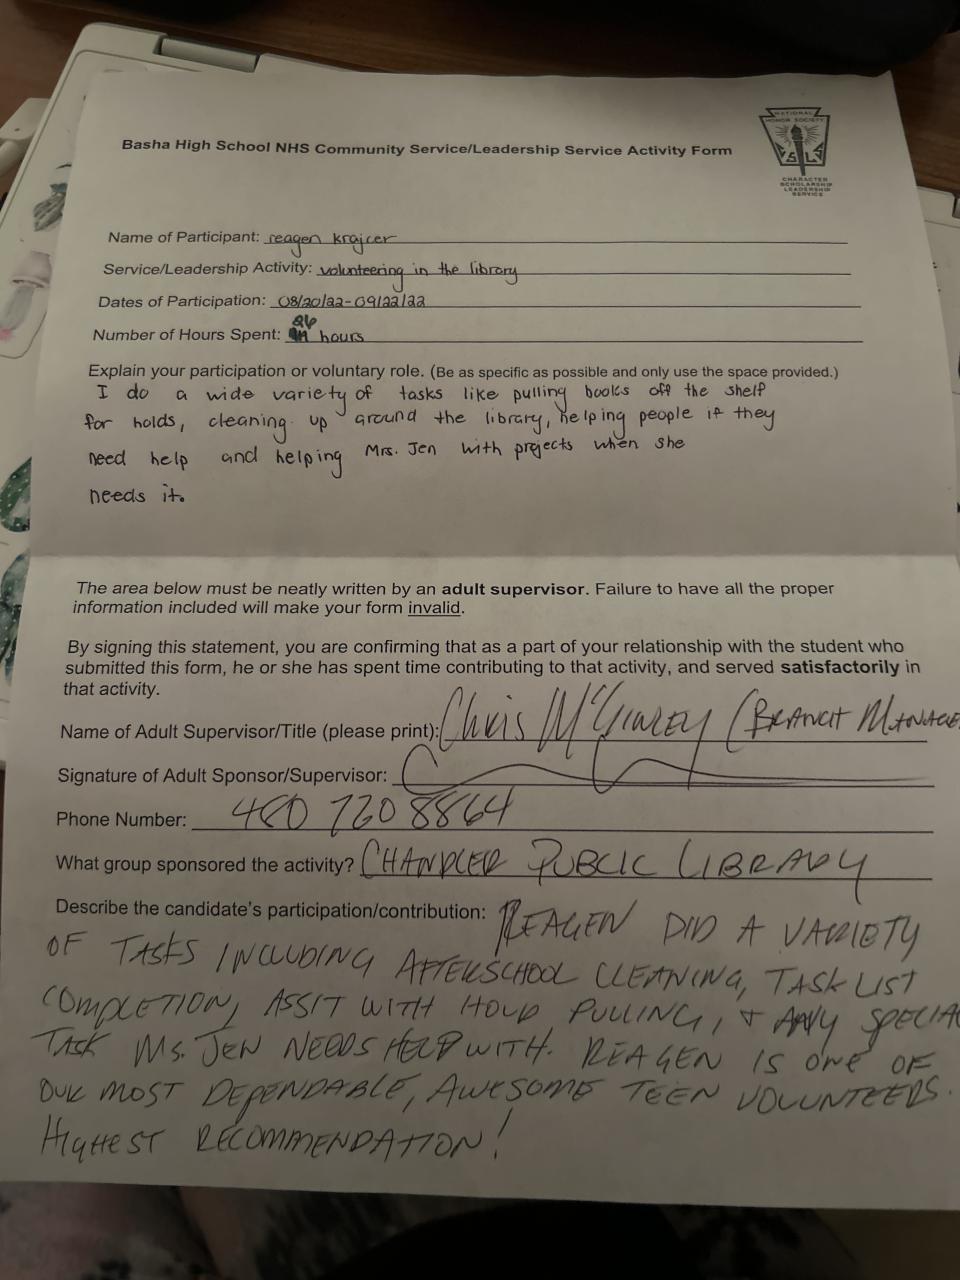 NATIONAL
HONOR SOCIETY
CHARACTER
SCHOLARSHIP
LEADERSHIP
SERVICE
Basha High School NHS Community Service/Leadership Service Activity Form
Name of Participant: reagen krajcer
Service/Leadership Activity: volunteering in the library
Dates of Participation: 08/20/22-09/22/22
Number of Hours Spent: 26 hours
Explain your participation or voluntary role. (Be as specific as possible and only use the space provided.)
I do a wide variety of tasks like pulling books off the shelf
for holds, cleaning up around the library, helping people if they
need help and helping Mrs. Jen with projects when she
needs it.
The area below must be neatly written by an adult supervisor. Failure to have all the proper
information included will make your form invalid.
By signing this statement, you are confirming that as a part of your relationship with the student who
submitted this form, he or she has spent time contributing to that activity, and served satisfactorily in
that activity.
Name of Adult Supervisor/Title (please print): Chris (BRANCH MANAGE
Signature of Adult Sponsor/Supervisor:
Phone Number: 480 720 8864
What group sponsored the activity? CHANDLER PUBLIC LIBRARY
Describe the candidate's participation/contribution: REAGEN DID A VARIETY
OF TASKS INCLUDING AFTERSCHOOL CLEANING, TASK LIST
COMPLETION, ASSIT WITH HOLD PULLING, & ANY SPECIAL
TASK MS. JEN NEEDS HELP WITH. REAGEN IS ONE OF
OUR MOST DEPENDABLE, AWESOME TEEN VOLUNTEERS.
HIGHEST RECOMMENDATION!